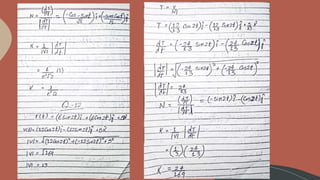 N = (dT/dt) / |dT/dt| = (-Cost - Sint/√2) i + (-Sint+Cost/√2) j
K = 1/|v| |dT/dt|
= 1/e^t√2 (1)
K = 1/e^t√2
Q.12
r(t) = (6 Sin2t) i + (6 Cos2t) j + 5t k
v(t) = (12 Cos2t) i - (12 Sin2t) j + 5 k
|v| = √(12 Cos2t)² + (-12 Sin2t)² + 5²
|v| = √169
|v| = 13
T = v/|v|
T = (12/13 Cos2t) i - (12/13 Sin2t) j + 5/13 k
dT/dt = (-24/13 Sin2t) i - (24/13 Cos2t) j
|dT/dt| = √(-24/13 Sin2t)² + (-24/13 Cos2t)²
|dT/dt| = 24/13
N = (dT/dt) / |dT/dt| = (-Sin2t) i - (Cos2t) j
K = 1/|v| |dT/dt|
= (1/13) (24/13)
K = 24/169